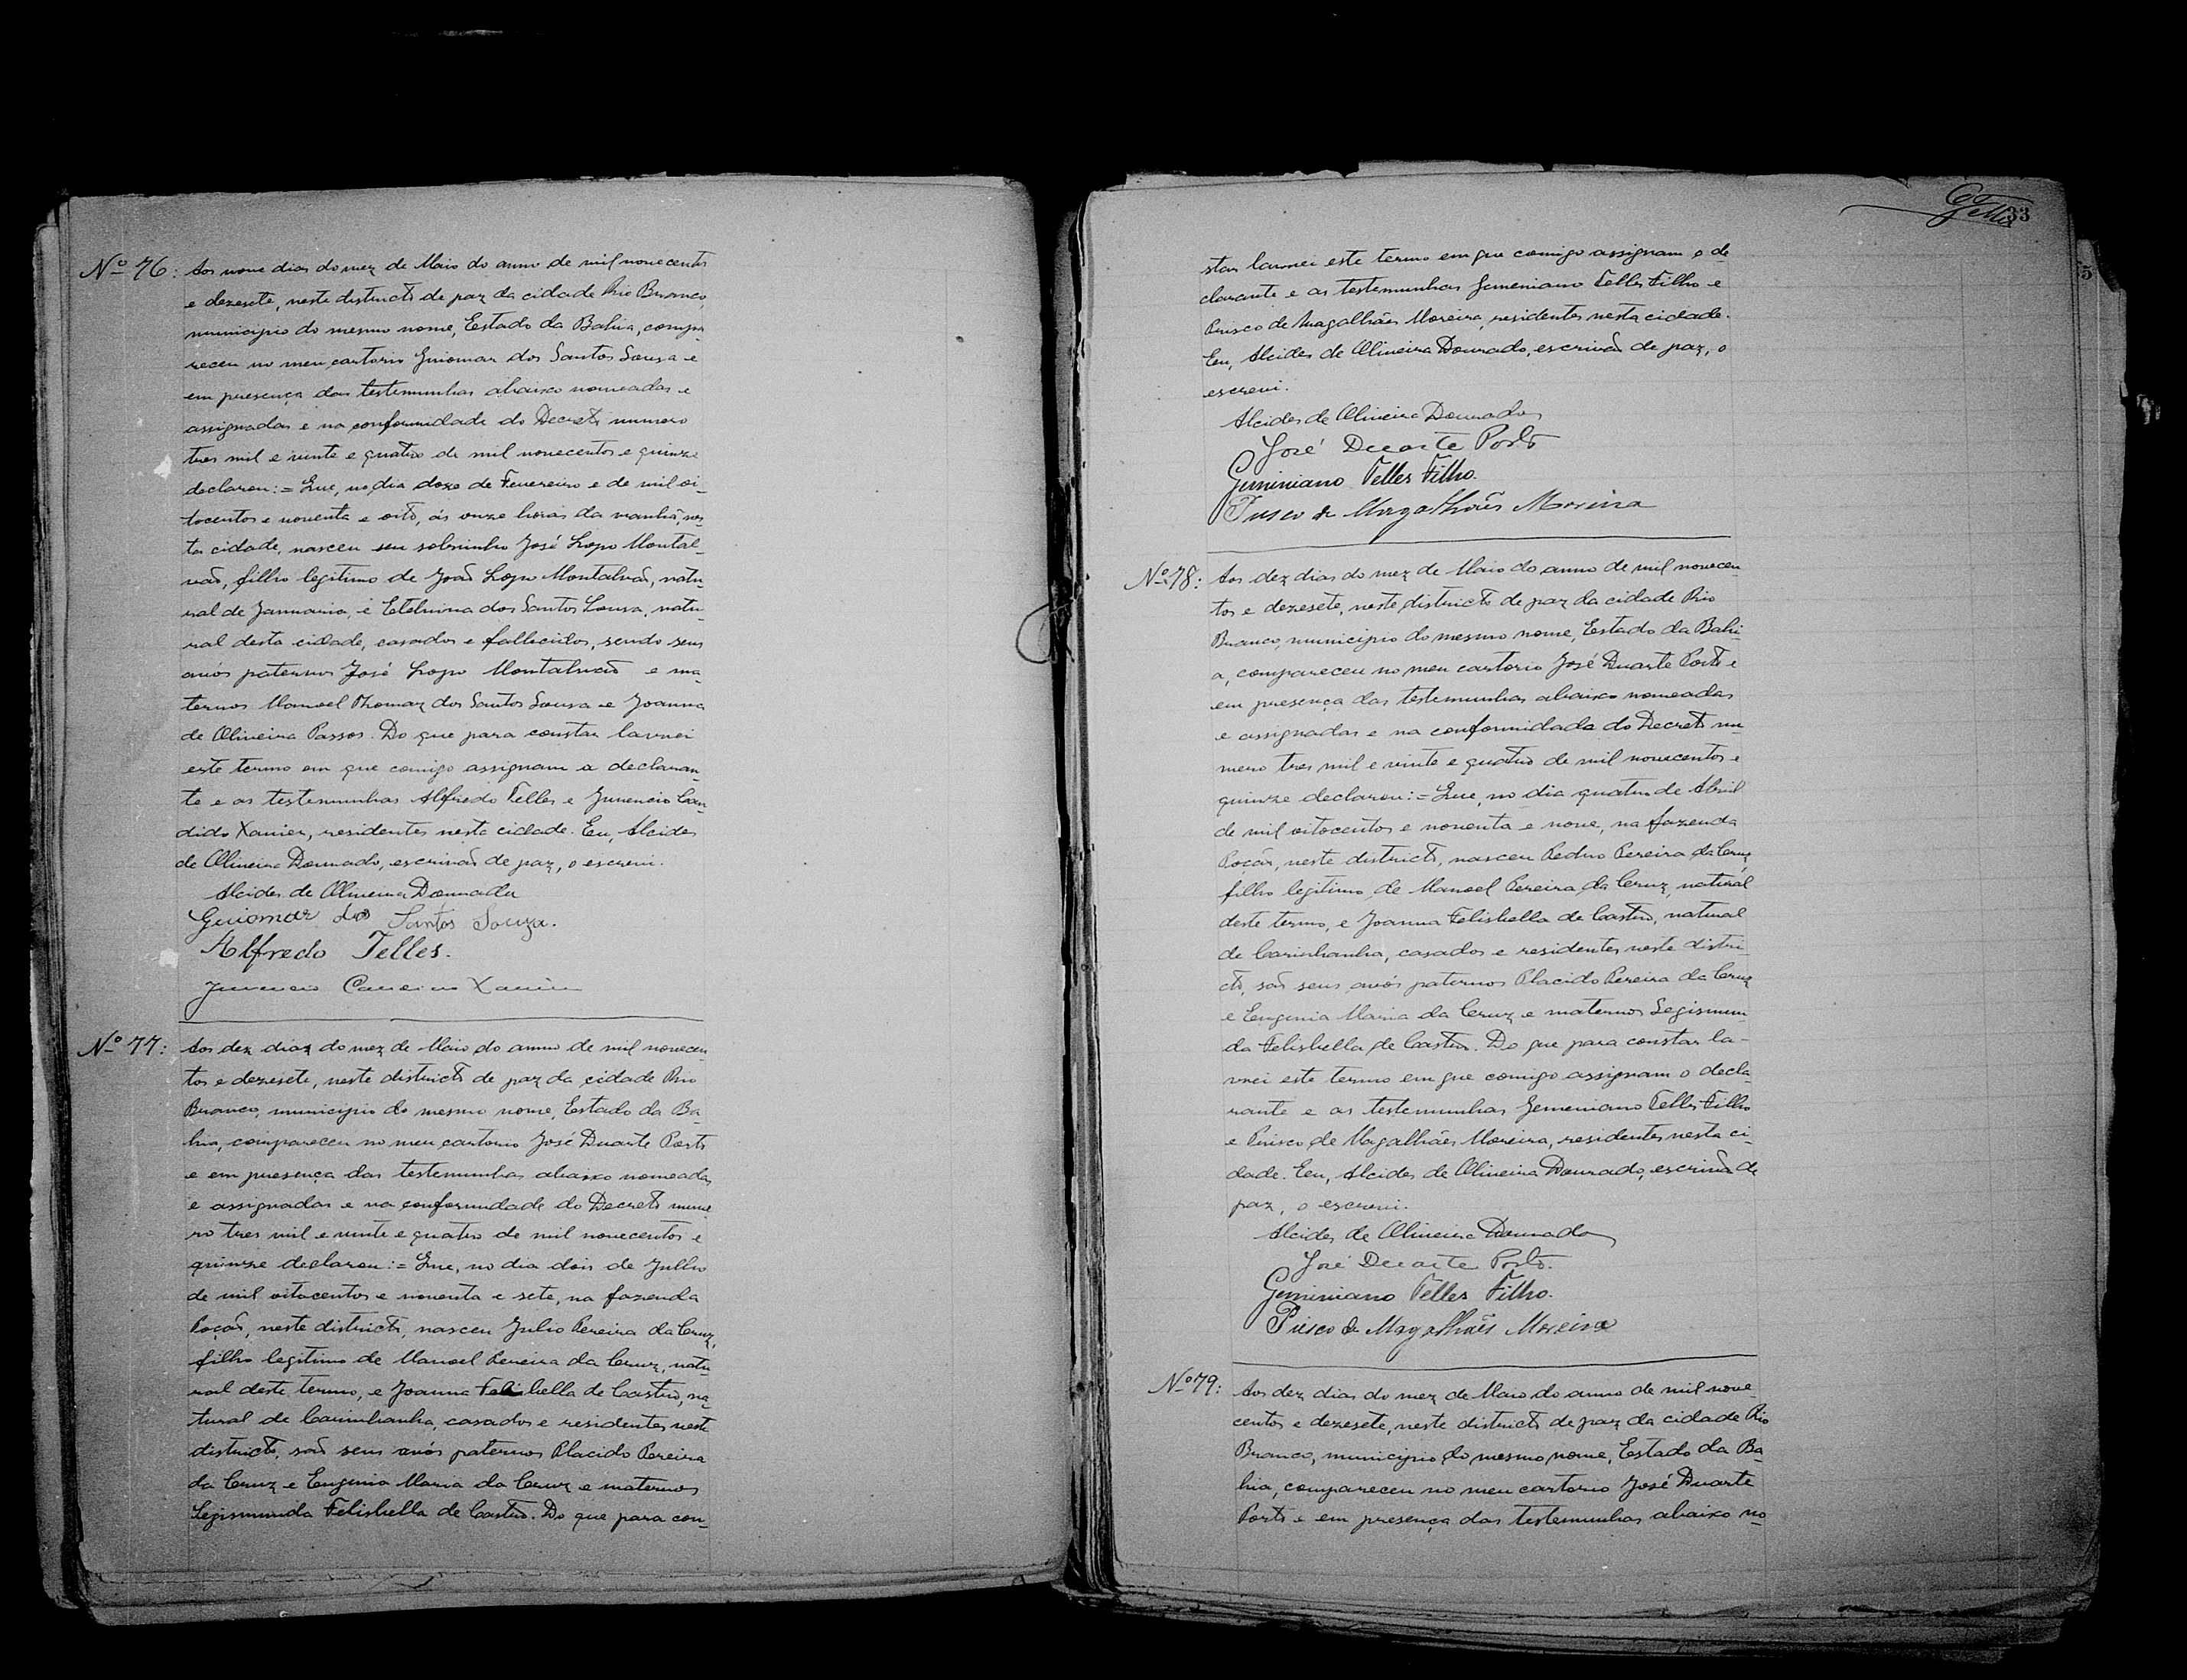 Nº 76: Aos nove dias do mez de Maio do anno de mil novecentos
e dezesete, neste districto de paz da cidade Rio Branco,
municipio do mesmo nome, Estado da Bahia, compa
receu no meu cartorio Guiomar dos Santos Sousa e
em presença das testemunhas abaixo nomeadas e
assignadas e na conformidade do Decreto numero
tres mil e vinte e quatro de mil novecentos e quinze
declarou:= Que, no dia doze de Fevereiro e de mil oi-
tocentos e noventa e oito, ás onze horas da manhã, nes
ta cidade, nasceu seu sobrinho José Lopo Montal-
vão, filho legitimo de João Lopo Montalvão, natu
ral de Januaria, e Etelvina dos Santos Sousa, natu
ral desta cidade, casados e fallecidos, sendo seus
avós paternos José Lopo Montalvão e ma
ternos Manoel Thomaz dos Santos Sousa e Joanna
de Oliveira Passos. Do que para constar lavrei
este termo em que comigo assignam a declaran
te e as testemunhas Alfredo Telles e Juvencio Can
dido Xavier, residentes nesta cidade. Eu, Alcides
de Oliveira Dourado, escrivão de paz, o escrevi.
Alcides de Oliveira Dourado
Guiomar dos Santos Souza.
Alfredo Telles.
Juvencio Xavier
Nº 77: Aos dez dias do mez de Maio do anno de mil novecen
tos e dezesete, neste districto de paz da cidade Rio
Branco, municipio do mesmo nome, Estado da Ba
hia, compareceu no meu cartorio José Duarte Porto
e em presença das testemunhas abaixo nomeadas
e assignadas e na conformidade do Decreto nume
ro tres mil e vinte e quatro de mil novecentos e
quinze declarou:= Que, no dia dois de Julho
de mil oitocentos e noventa e sete, na fazenda
Poção, neste districto, nasceu Julio Pereira da Cruz,
filho legitimo de Manoel Pereira da Cruz, natu
ral deste termo, e Joanna Felisbella de Castro, na
tural de Carinhanha, casados e residentes neste
districto, são seus avós paternos Placido Pereira
da Cruz e Eugenia Maria da Cruz e maternos
Segismunda Felisbella de Castro. Do que para con-
33
star lavrei este termo em que comigo assignam o de
clarante e as testemunhas Gemeniano Telles Filho e
Prisco de Magalhães Moreira, residentes nesta cidade.
Eu, Alcides de Oliveira Dourado, escrivão de paz, o
escrevi.
Alcides de Oliveira Dourado
José Duarte Porto
Geminiano Telles Filho.
Prisco de Magalhães Moreira
Nº 78: Aos dez dias do mez de Maio do anno de mil novecen
tos e dezesete, neste districto de paz da cidade Rio
Branco, municipio do mesmo nome, Estado da Bahi
a, compareceu no meu cartorio José Duarte Porto e
em presença das testemunhas abaixo nomeadas
e assignadas e na conformidade do Decreto nu
mero tres mil e vinte e quatro de mil novecentos e
quinze declarou:= Que, no dia quatro de Abril
de mil oitocentos e noventa e nove, na fazenda
Poção, neste districto, nasceu Pedro Pereira da Cruz
filho legitimo de Manoel Pereira da Cruz, natural
deste termo, e Joanna Felisbella de Castro, natural
de Carinhanha, casados e residentes neste distri
cto, são seus avós paternos Placido Pereira da Cruz
e Eugenia Maria da Cruz e maternos Segismun
da Felisbella de Castro. Do que para constar la-
vrei este termo em que comigo assignam o decla
rante e as testemunhas Gemeniano Telles Filho
e Prisco de Magalhães Moreira, residentes nesta ci-
dade. Eu, Alcides de Oliveira Dourado, escrivão de
paz, o escrevi.
Alcides de Oliveira Dourado
José Duarte Porto.
Geminiano Telles Filho.
Prisco de Magalhães Moreira
Nº 79: Aos dez dias do mez de Maio do anno de mil nove
centos e dezesete, neste districto de paz da cidade Rio
Branco, municipio do mesmo nome, Estado da Ba
hia, compareceu no meu cartorio José Duarte
Porto e em presença das testemunhas abaixo no